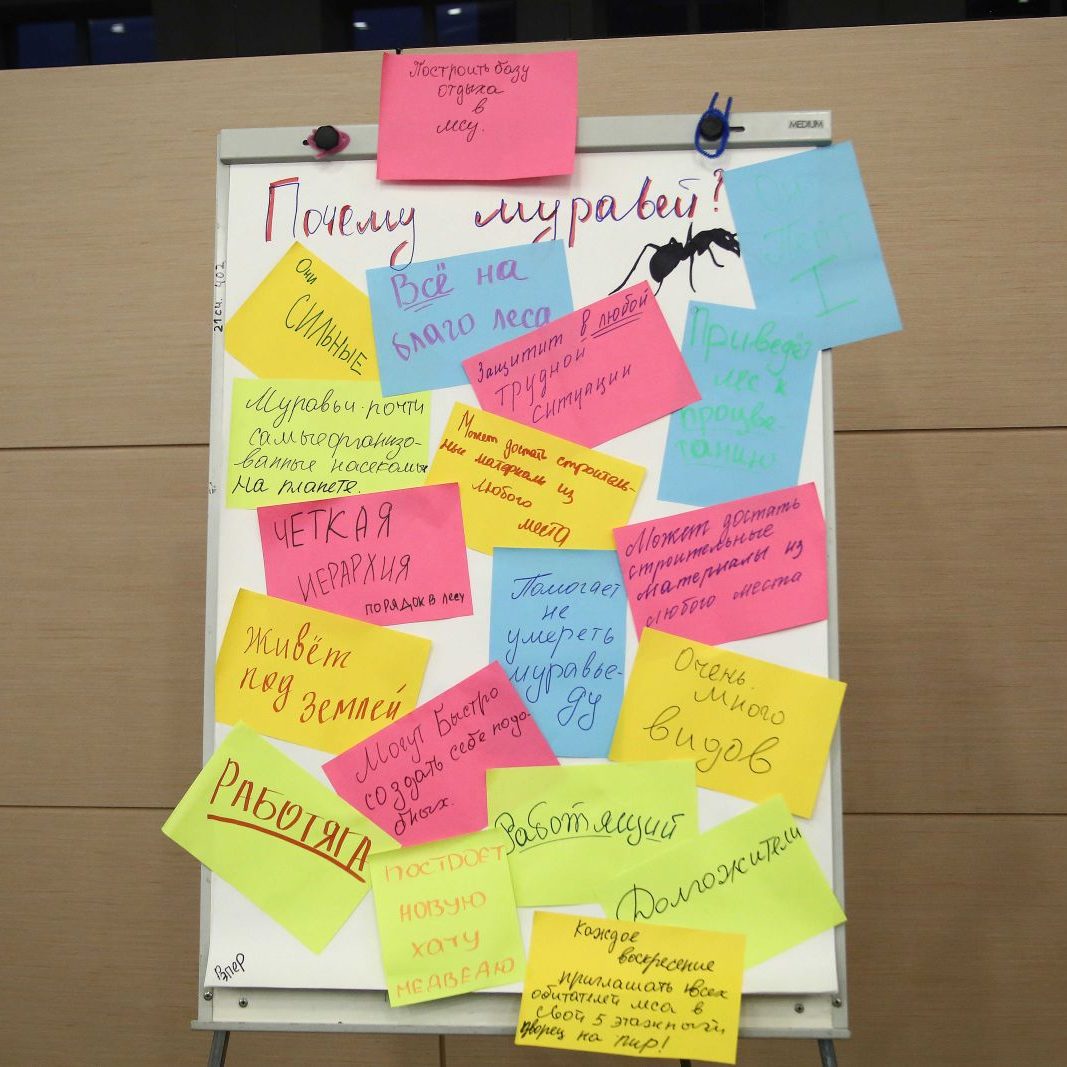 Построить базу
отдыха
в
лесу.
MEDIUM
Почему муравей?
21сч. 402
Они
СИЛЬНЫЕ
Всё на
благо леса
Защитит в любой
трудной
ситуации
Он
I
Приведёт
лес к
процве
танию
Муравьи почти
самые организо-
ванные насекомые
на планете.
Может достать строитель-
ные материалы из
любого
места
ЧЕТКАЯ
ИЕРАРХИЯ
ПОРЯДОК В лесу
Помогает
не
умереть
муравье-
ду
Может достать
строительные
материалы из
любого места
Живёт
под
землей
Могут Быстро
создать себе подо-
бных.
Очень
много
видов
РАБОТЯГА
Работящий
Долгожители
ПОСТРОЕТ
НОВУЮ
ХАТУ
МЕДВЕДЮ
Каждое
воскресение
приглашать всех
обитателей леса в
свой 5 этажный
дворец на пир!